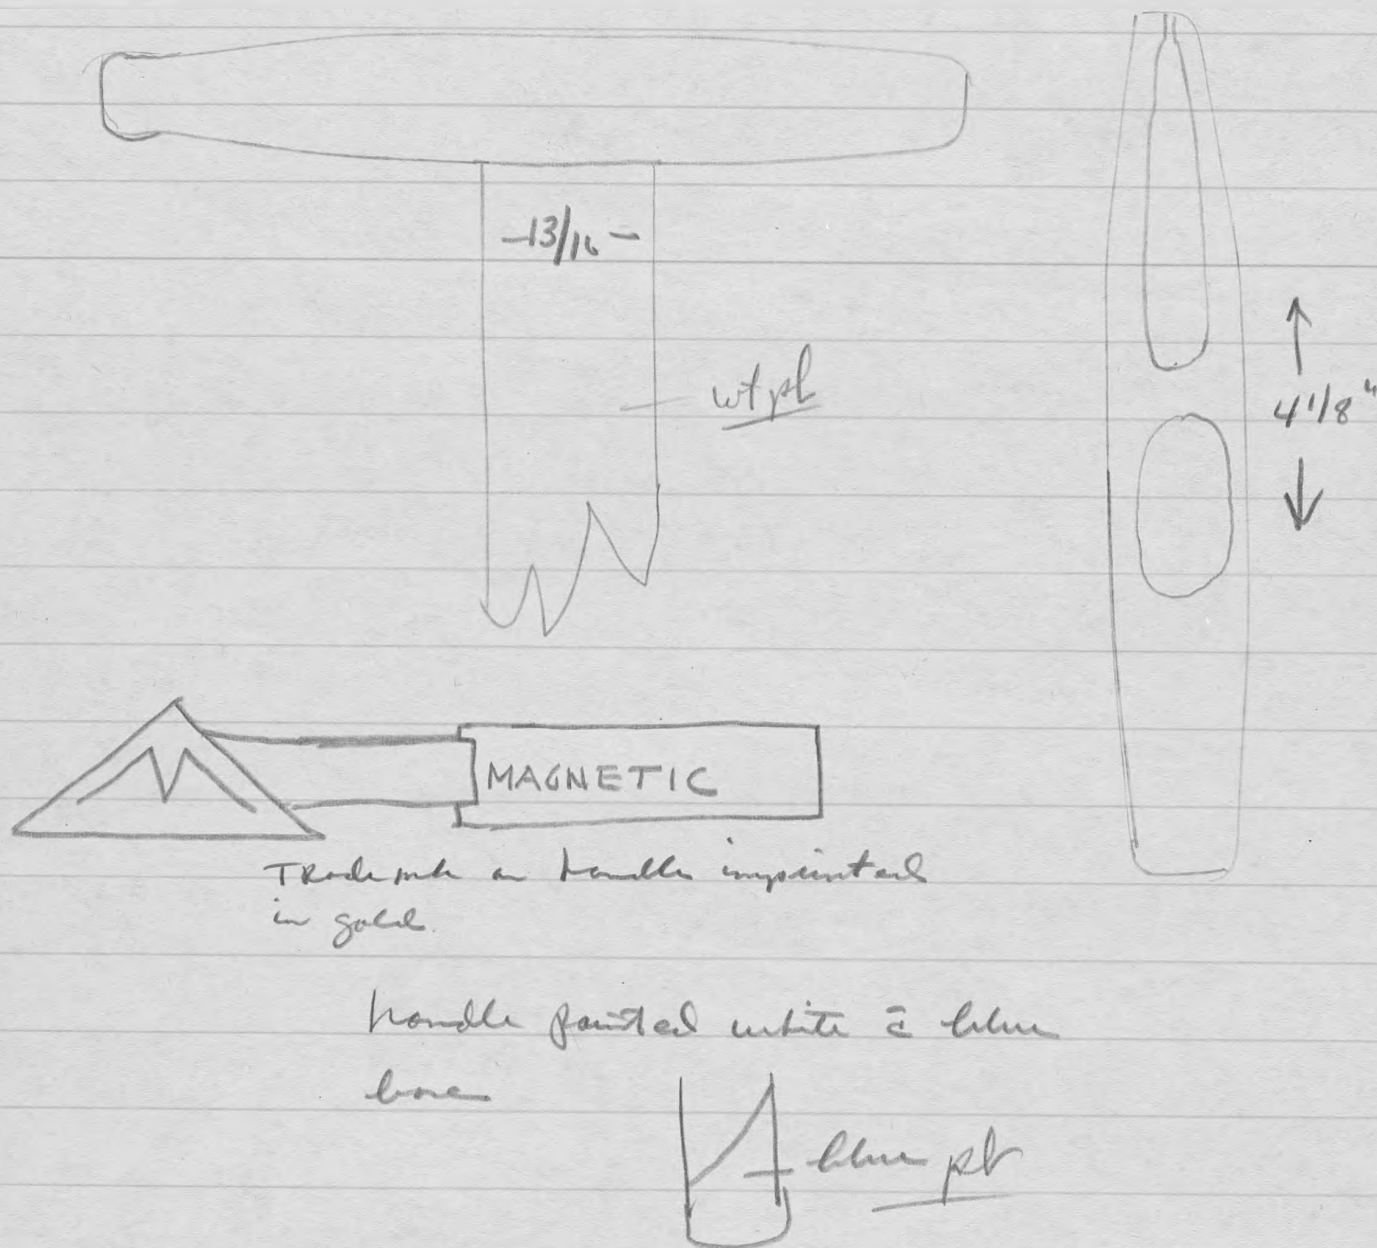 -13/16-
wt pt
4 1/8"
M
MAGNETIC
Trade mk on handle imprinted
in gold.
handle painted white c̄ blue
base
blue pt